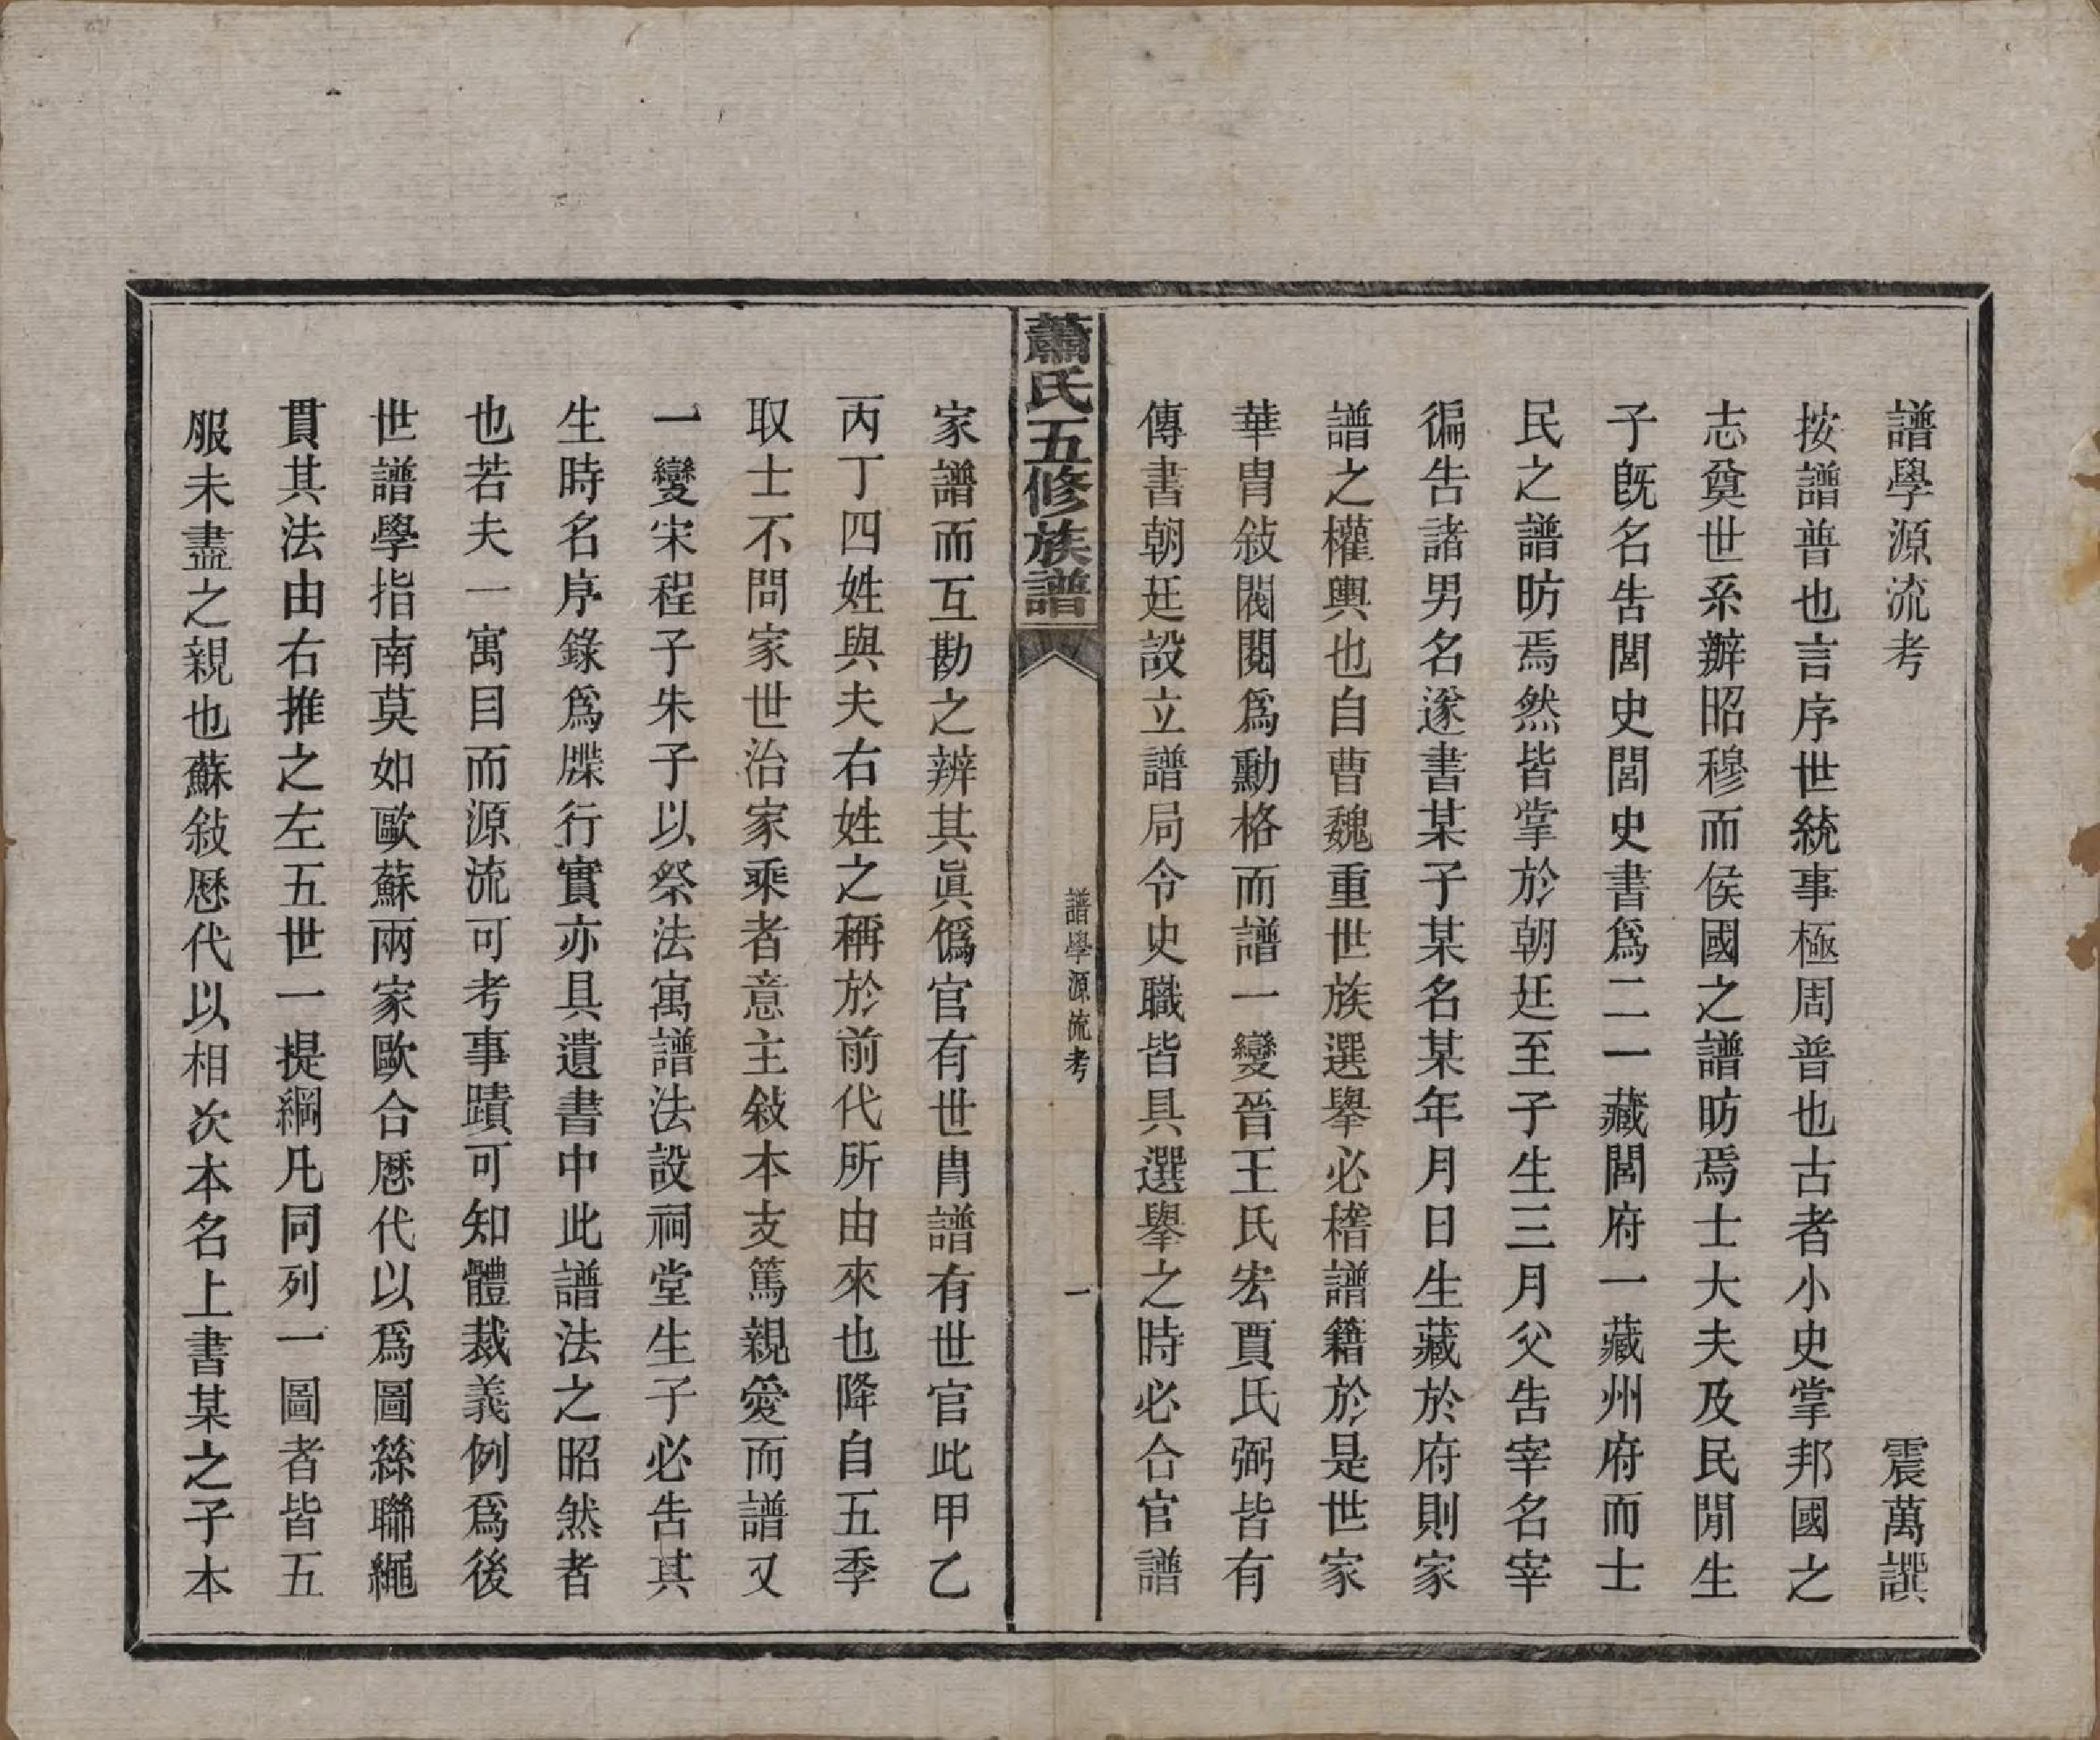 譜學源流考 震萬譔
按譜普也言序世統事極周普也古者小史掌邦國之
志奠世系辦昭穆而侯國之譜昉焉士大夫及民閒生
子旣名告閭史閭史書爲二一藏閭府一藏州府而士
民之譜昉焉然皆掌於朝廷至子生三月父告宰名宰
徧告諸男名遂書某子某名某年月日生藏於府則家
譜之權輿也自曹魏重世族選舉必稽譜籍於是世家
華胄敍閥閱爲勳格而譜一變晉王氏宏賈氏弼皆有
傳書朝廷設立譜局令史職皆具選舉之時必合官譜
蕭氏五修族譜
譜學源流考
一
家譜而互勘之辨其眞僞官有世胄譜有世官此甲乙
丙丁四姓與夫右姓之稱於前代所由來也降自五季
取士不問家世治家乘者意主敍本支篤親愛而譜又
一變宋程子朱子以祭法寓譜法設祠堂生子必告其
生時名序錄爲牒行實亦具遺書中此譜法之昭然者
也若夫一寓目而源流可考事蹟可知體裁義例爲後
世譜學指南莫如歐蘇兩家歐合歷代以爲圖絲聯繩
貫其法由右推之左五世一提綱凡同列一圖者皆五
服未盡之親也蘇敍歷代以相次本名上書某之子本